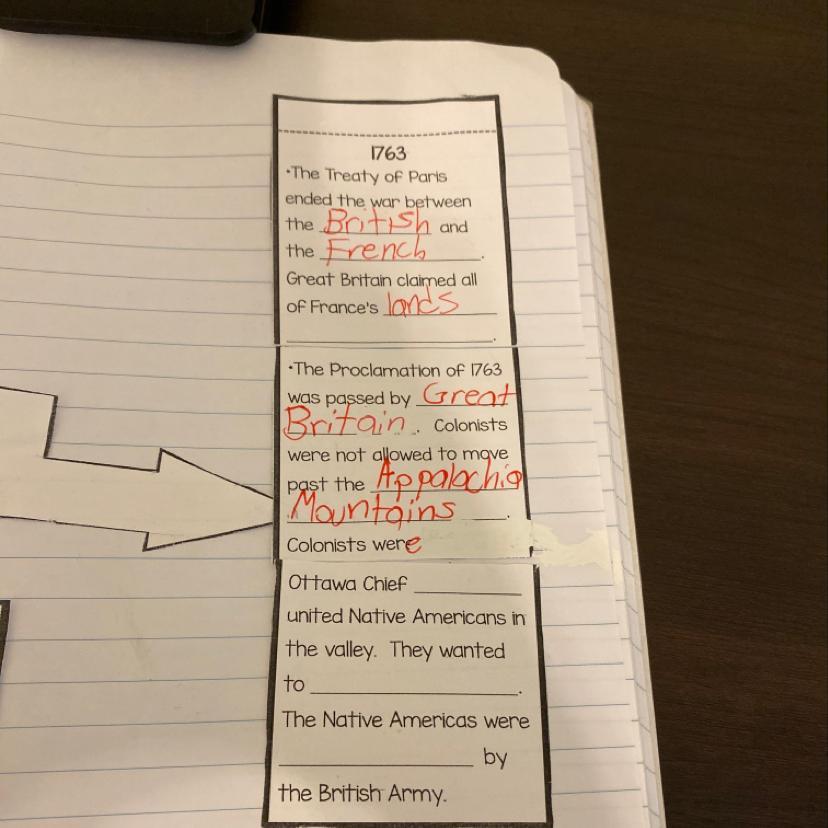 1763
•The Treaty of Paris
ended the war between
the British and
the French.
Great Britain claimed all
of France's lands
.
•The Proclamation of 1763
was passed by Great
Britain. Colonists
were not allowed to move
past the Appalachia
Mountains.
Colonists were
Ottawa Chief ________
united Native Americans in
the valley. They wanted
to ________.
The Native Americas were
________ by
the British Army.